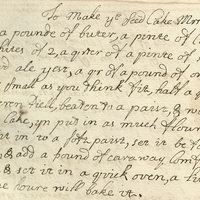 To Make ye seed Cake Mrs
a pounde of buter, a pinte of
whites of 2, a qrter of a pinte of
ad ale yest, a qr of a pound of
small as you think fit, half a
beaten to a past, &
Cake, yn put in as much flour
it in to a soft past, set it be
& add a pound of caraway Comf
& set it in a quick oven, a
houre will bake it.